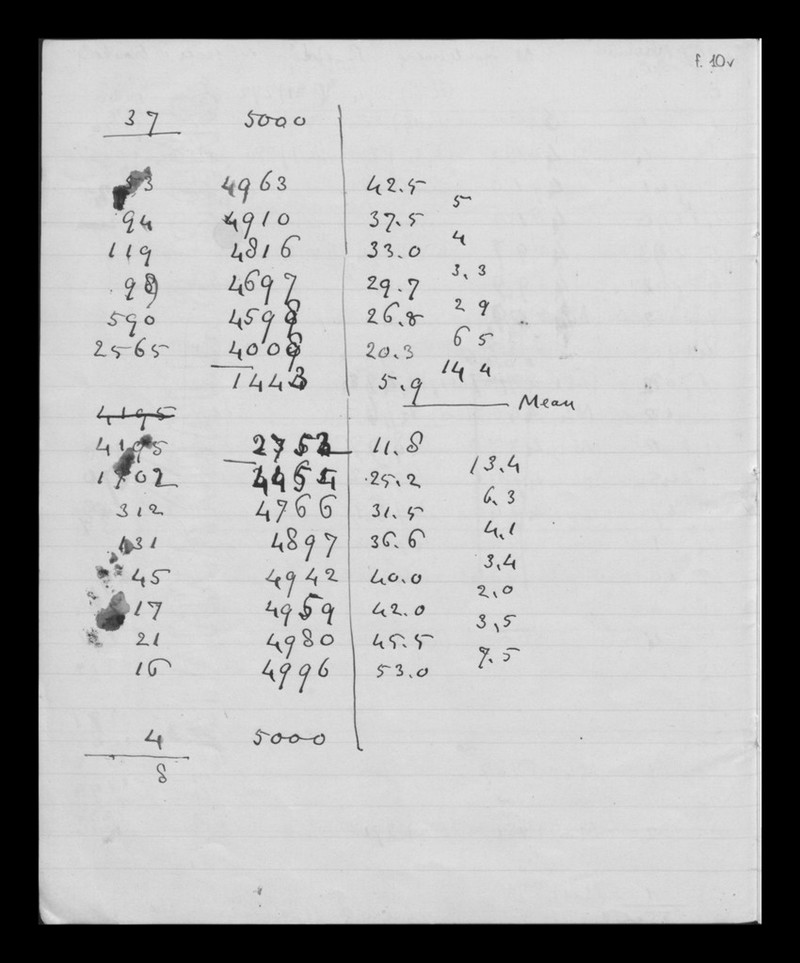 f. 10v
37 5000
53 4963 42.5
5
94 4910 37.5
4
119 4816 33.0
3,3
98 4697 29.7
2 9
590 4598 26.8
6 5
2565 4008 20.3
14 4
1443 5.9
Mean
4195
4195 2753 11.8
13.4
1702 4454 25.2
6.3
312 4766 31.5
4,1
131 4897 36.6
3,4
45 4942 40.0
2,0
17 4959 42.0
3,5
21 4980 45.5
7.5
16 4996 53.0
4 5000
8